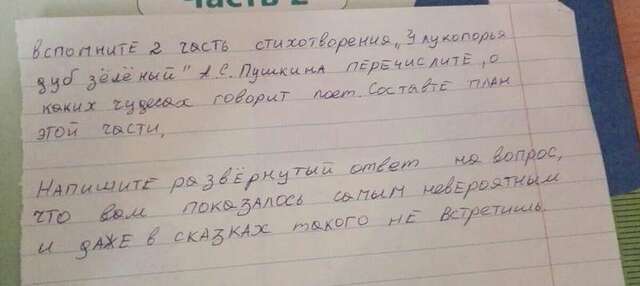 Часть 2
Вспомните 2 часть стихотворения „У лукопорья
дуб зёлёный" А.С. Пушкина перечислите, о
каких чудесах говорит поэт. Составте план
этой части.
Напишите развёрнутый ответ на вопрос,
что вам показалось самым невероятным
и даже в сказках такого не встретишь.